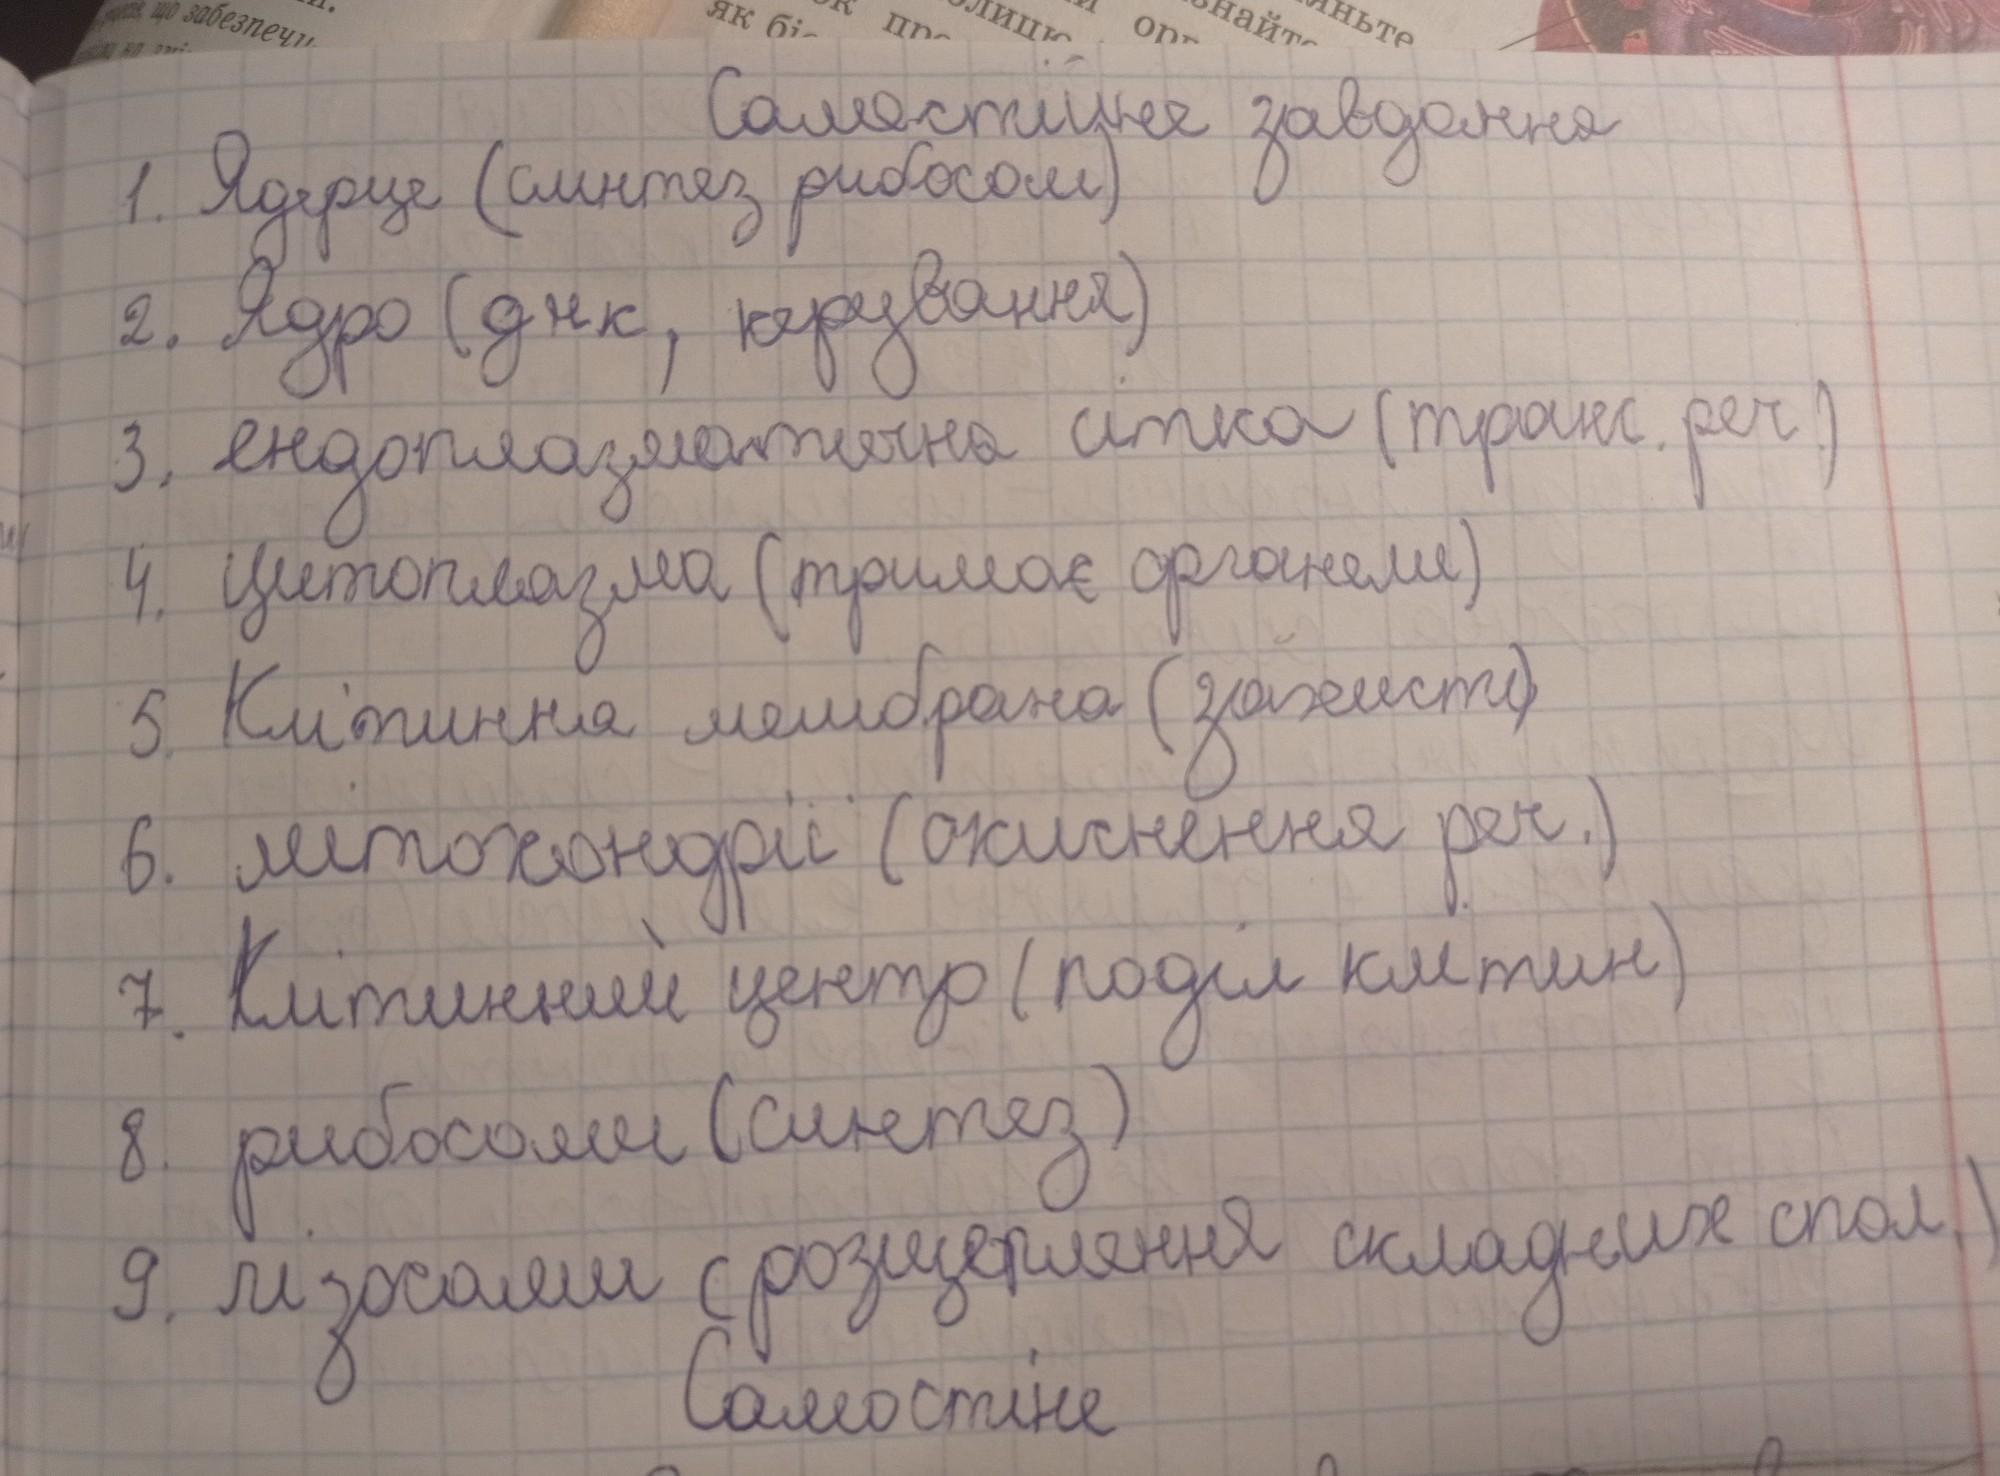 що забезпечу
як біо
Самостійне завдання
1. Ядерце (синтез рибосом)
2. Ядро (днк, керування)
3. ендоплазматична сітка (транс. реч.)
4. цитоплазма (тримає органели)
5. Клітинна мембрана (захист)
6. мітохондрії (окиснення реч.)
7. Клітинний центр (поділ клітин)
8. рибосоми (синтез)
9. лізосоми (розщеплення складних спол.)
Самостіне